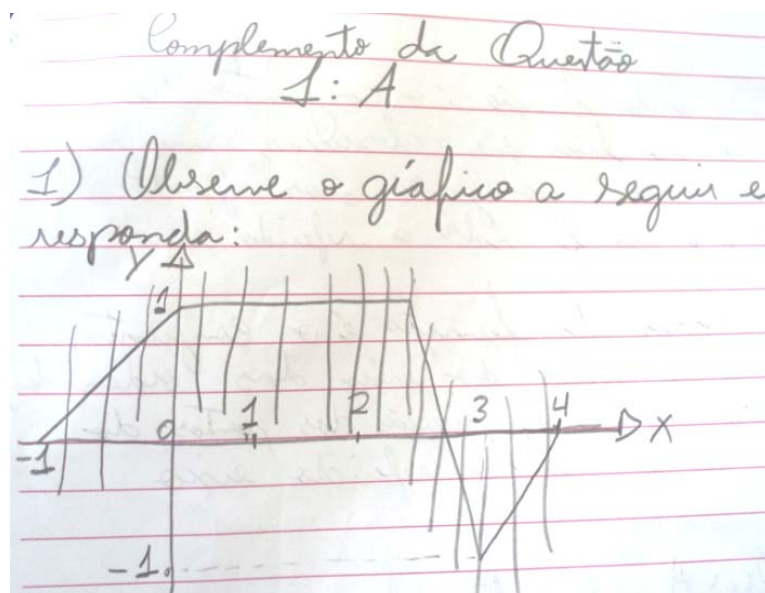 Complemento da Questão
1: A
1) Observe o gráfico a seguir e
responda:
Y
1
0 1 2 3 4 X
-1
-1